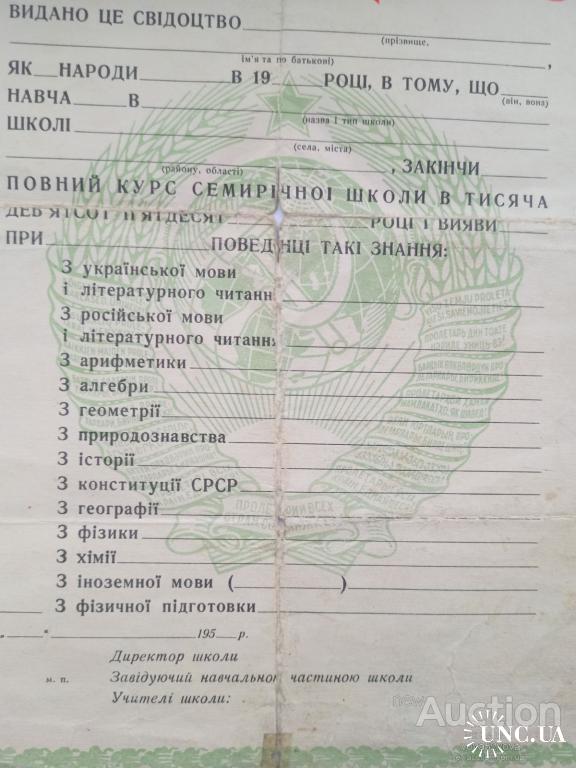 ВИДАНО ЦЕ СВІДОЦТВО
(прізвище,
ім'я та по батькові)
ЯК НАРОДИ В 19 РОЦІ, В ТОМУ, ЩО
(він, вона)
НАВЧА В
(назва і тип школи)
ШКОЛІ
(села, міста)
, ЗАКІНЧИ
(району, області)
ПОВНИЙ КУРС СЕМИРІЧНОЇ ШКОЛИ В ТИСЯЧА
ДЕВ'ЯТСОТ П'ЯТДЕСЯТ РОЦІ І ВИЯВИ
ПРИ ПОВЕДІНЦІ ТАКІ ЗНАННЯ:
З української мови
і літературного читання
З російської мови
і літературного читання
З арифметики
З алгебри
З геометрії
З природознавства
З історії
З конституції СРСР
З географії
З фізики
З хімії
З іноземної мови ( )
З фізичної підготовки
„ “ 195 р.
Директор школи
м. п. Завідуючий навчальною частиною школи
Учителі школи:
ПРОЛЕТАРИИ ВСЕХ
Auction
UNC.UA